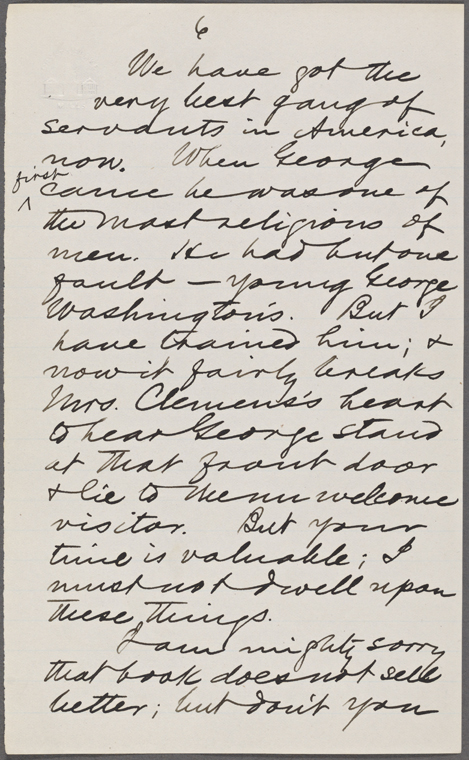 6
We have got the
very best gang of
servants in America,
now. When George
first
^ came he was one of
the most religious of
men. He had but one
fault — young George
Washington's. But I
have trained him; &
now it fairly breaks
Mrs. Clemens's heart
to hear George stand
at that front door
& lie to the unwelcome
visitor. But your
time is valuable; I
must not dwell upon
these things.
I am mighty sorry
that book does not sell
better; but don't you